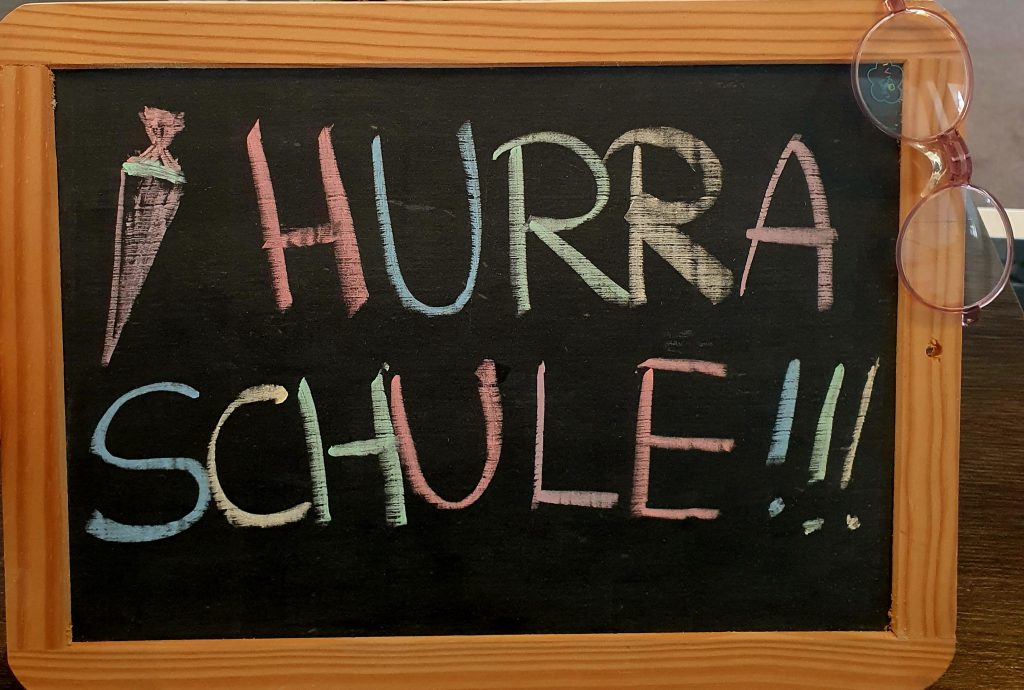 HURRA
SCHULE!!!